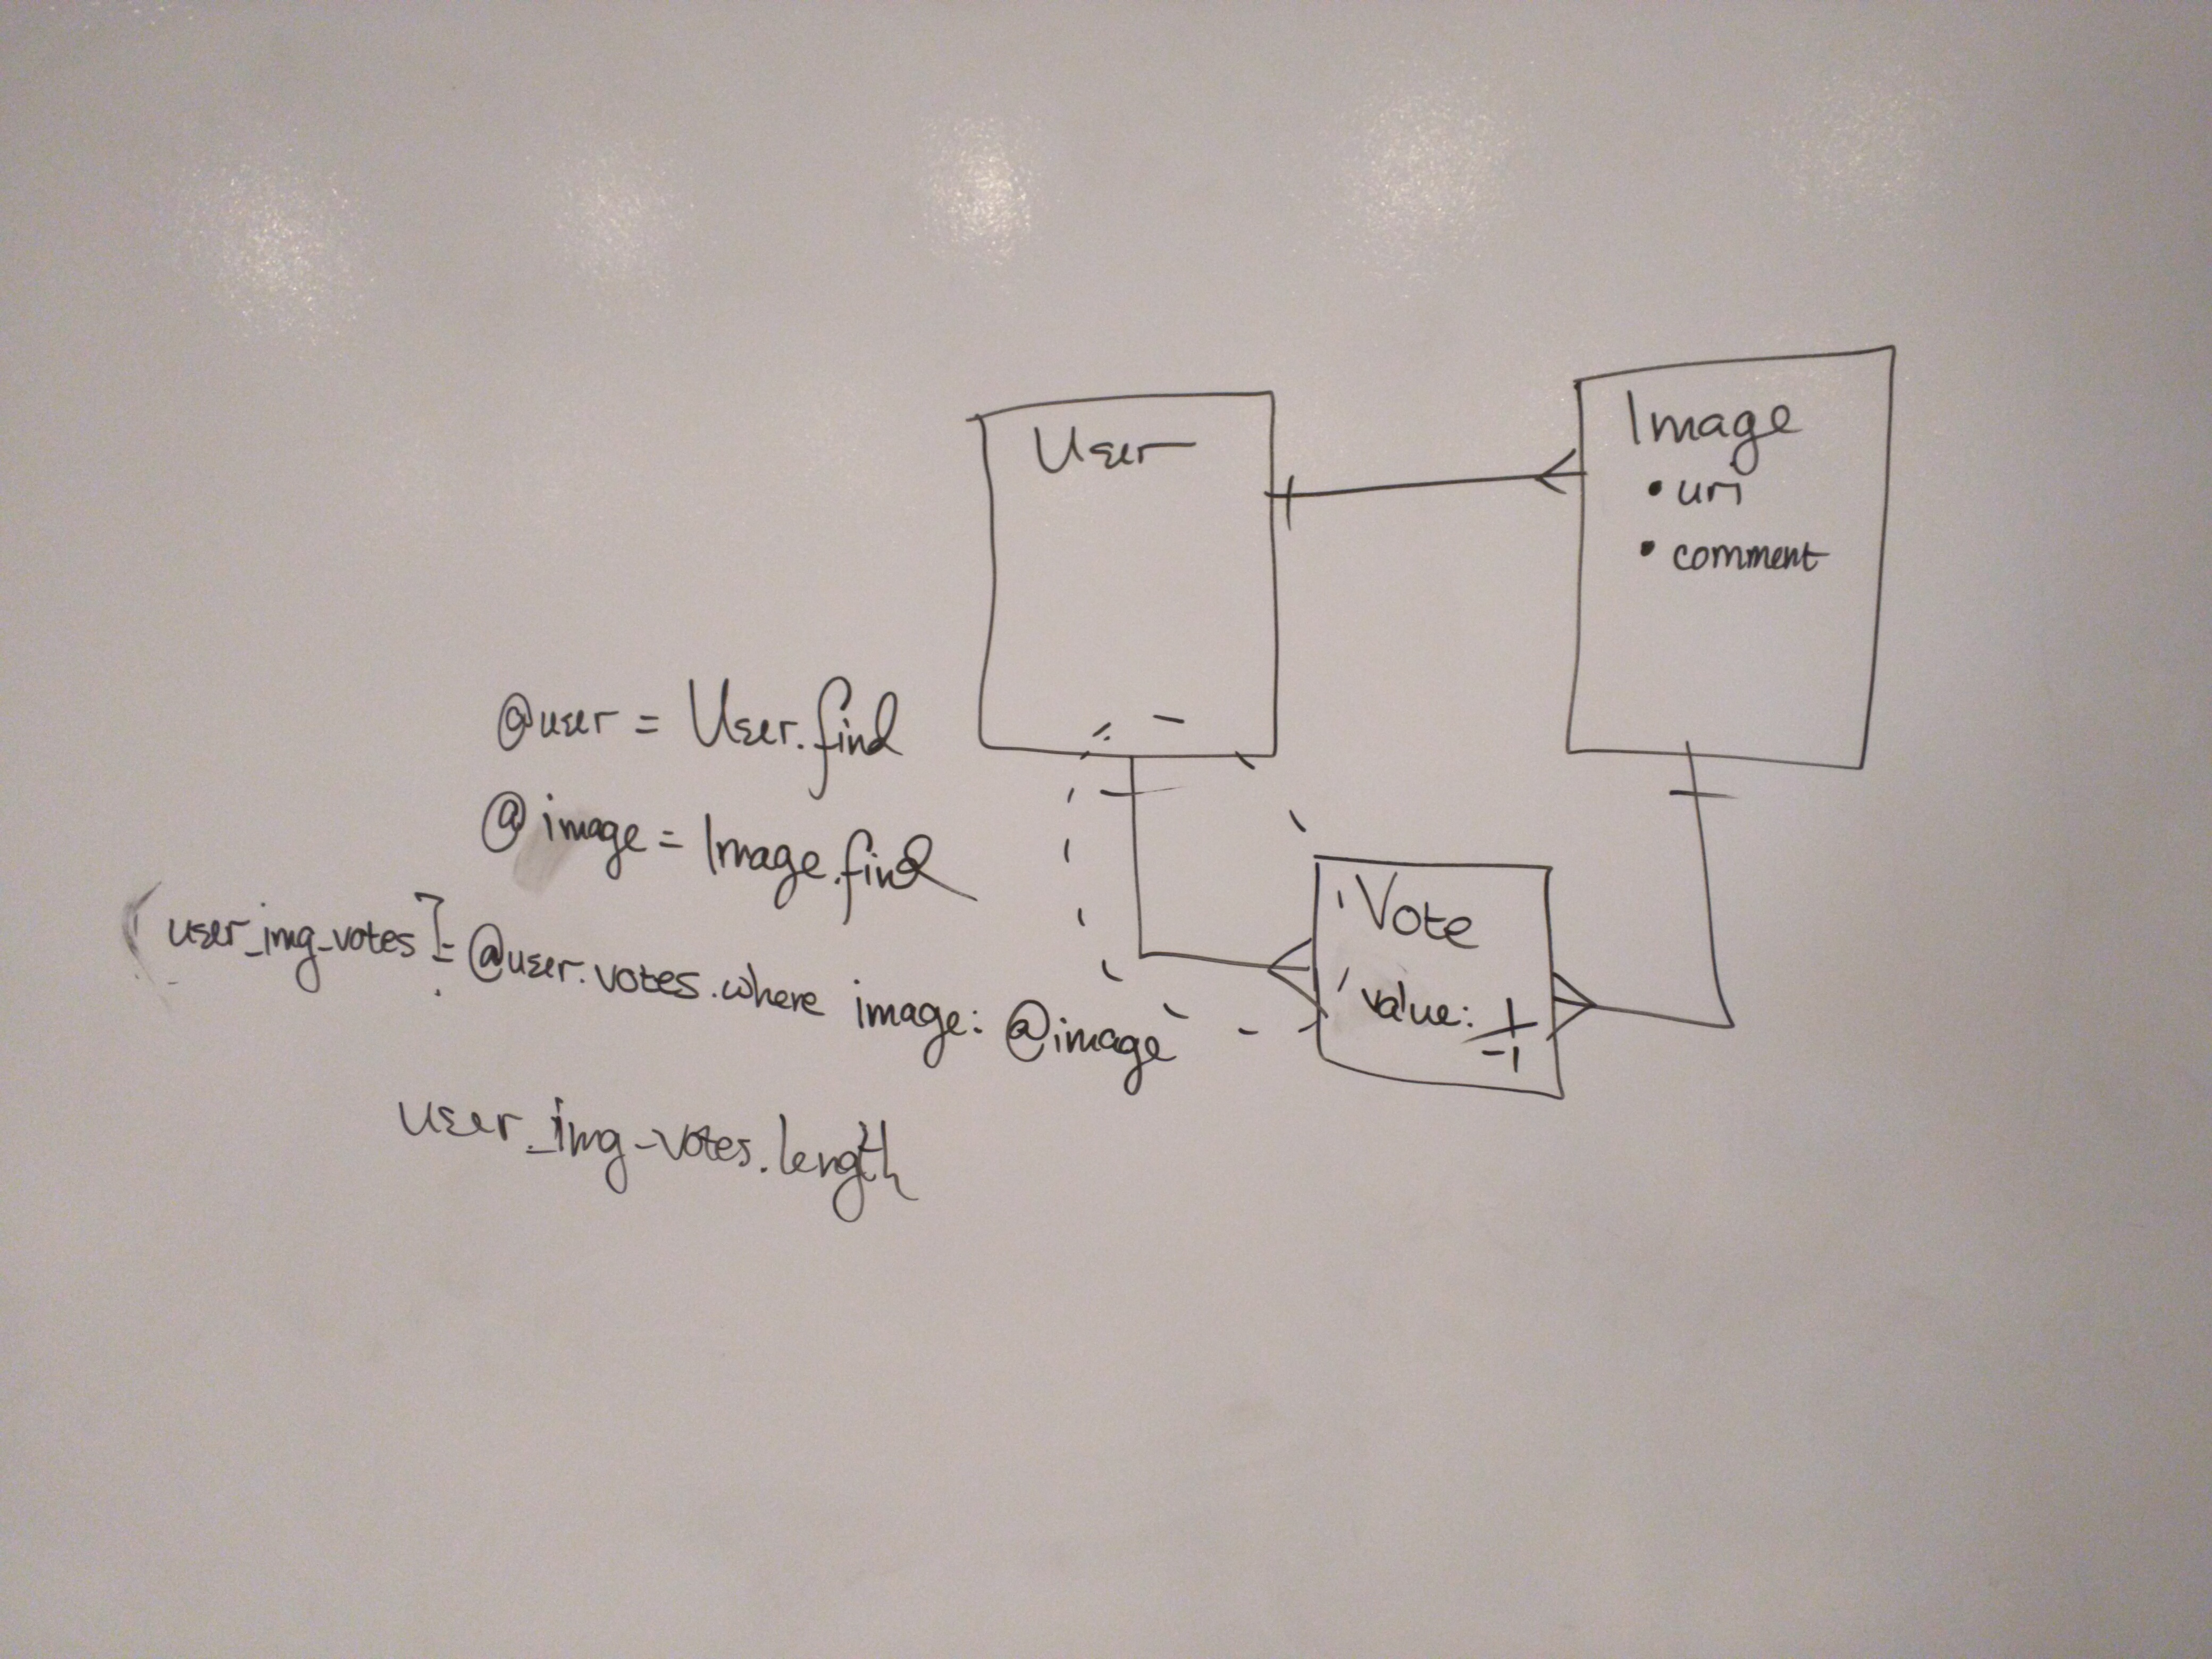 User
Image
• uri
• comment
@user = User.find
@image = Image.find
user_img_votes] = @user.votes.where image: @image
user_img_votes.length
Vote
value: +
-1